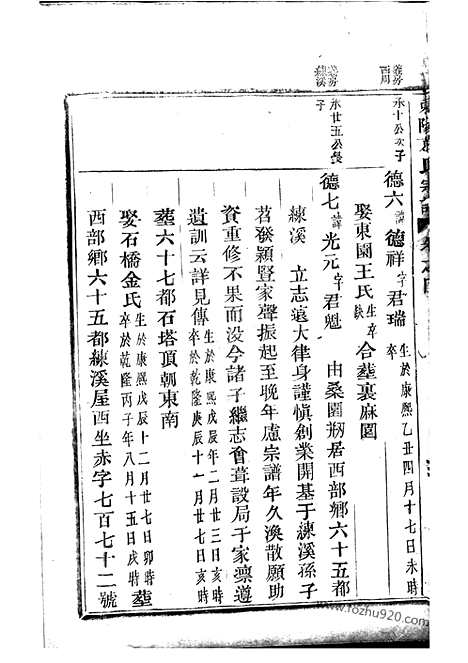 永十公次子
德六諱德祥字君瑞生於康熙乙丑四月十七日未時
娶東園王氏生卒合塟裏麻園
永廿五公長子
德七諱光元字君魁 由桑園剏居西部鄉六十五都
練溪 立志遠大律身謹慎創業開基于湅溪孫子
苕發穎豎家聲振起至晚年慮宗譜年久渙散願助
資重修不果而没今諸子繼志會葺設局于家禀遵
遺訓云詳見傳生於康熙戊辰年二月廿三日亥時卒於乾隆庚辰十一月廿七日亥時
塟六十七都石塔頂朝東南
娶石橋金氏生於康熙戊辰十二月廿七日卯時卒於乾隆丙子年八月十五日戌時塟
西部鄉六十五都練溪屋西坐赤字七百七十二號
www.fozhu920.com